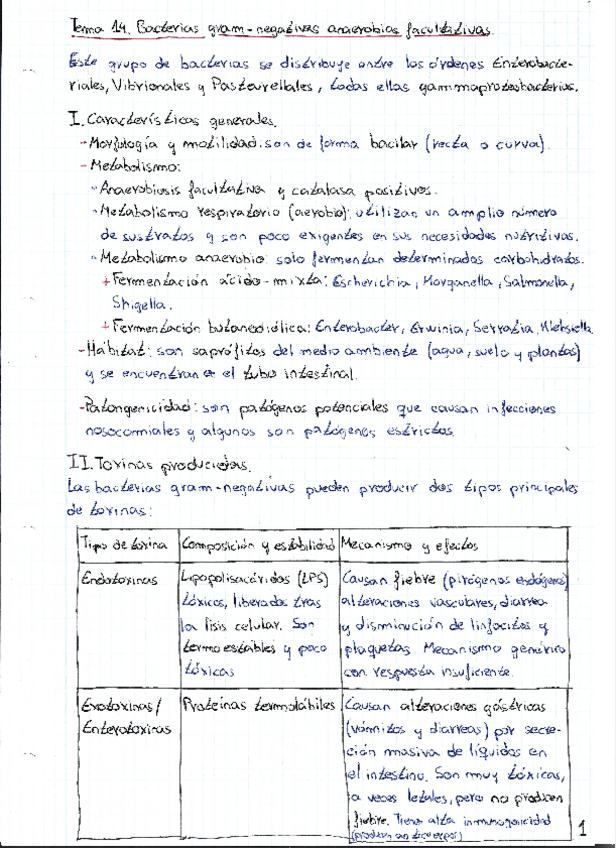 Tema 14. Bacterias gram-negativas anaerobias facultativas.
Este grupo de bacterias se distribuye entre los órdenes Enterobacte-
riales, Vibrionales y Pasteurellales, todas ellas gammaproteobacterias.
I. Características generales.
-Morfología y motilidad: son de forma bacilar (recta o curva).
-Metabolismo:
·Anaerobiosis facultativa y catalasa positivos.
·Metabolismo respiratorio (aerobio): utilizan un amplio número
de sustratos y son poco exigentes en sus necesidades nutritivas.
·Metabolismo anaerobio: solo fermentan determinados carbohidratos.
+Fermentación ácido-mixta: Escherichia, Morganella, Salmonella,
Shigella.
+Fermentación butanediólica: Enterobacter, Erwinia, Serratia, Klebsiella.
-Hábitat: son saprófitos del medio ambiente (agua, suelo y plantas)
y se encuentran en el tubo intestinal.
-Patongenicidad: son patógenos potenciales que causan infecciones
nosocomiales y algunos son patógenos estrictos.
II. Toxinas producidas.
Las bacterias gram-negativas pueden producir dos tipos principales
de toxinas:
Tipo de toxina
Composición y estabilidad
Mecanismo y efectos
Endotoxinas
Lipopolisacáridos (LPS)
tóxicos, liberados tras
la lisis celular. Son
termoestables y poco
tóxicas
Causan fiebre (pirógenos endógenos)
alteraciones vasculares, diarrea
y disminución de linfocitos y
plaquetas. Mecanismo genérico
con respuesta insuficiente.
Exotoxinas/
Enterotoxinas
Proteínas termolábiles
Causan alteraciones gástricas
(vómitos y diarreas) por secre-
ción masiva de líquidos en
el intestino. Son muy tóxicas,
a veces letales, pero no producen
fiebre. Tiene alta inmunogenicidad
(producen anticuerpos)
1